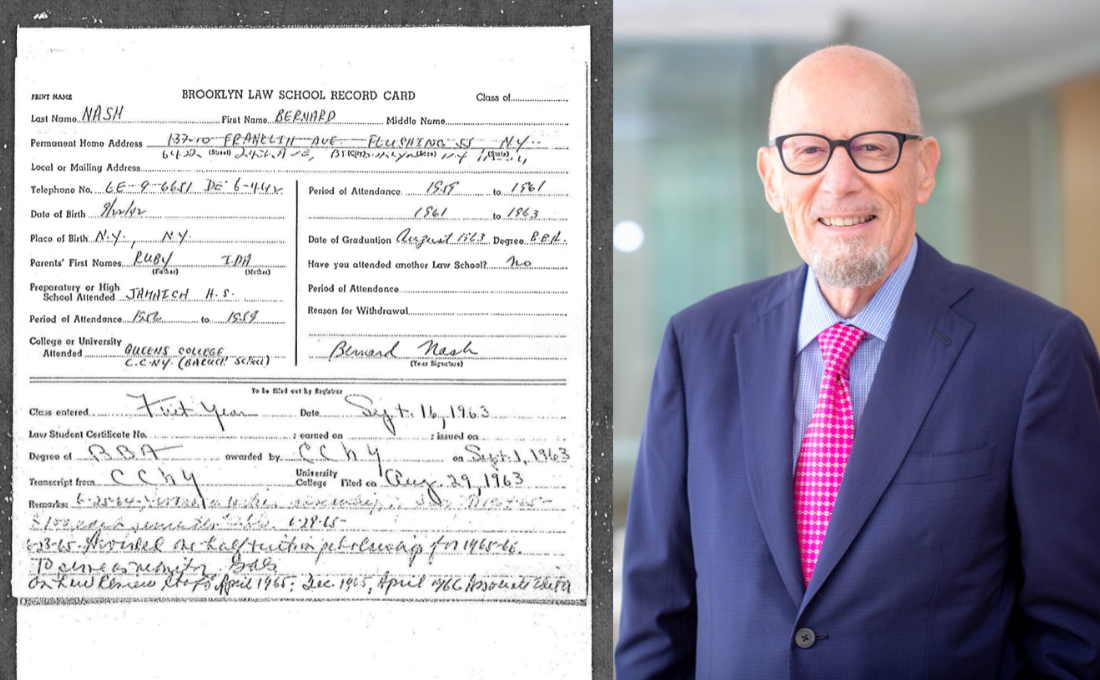 BROOKLYN LAW SCHOOL RECORD CARD
PRINT NAME
Class of
Last Name NASH First Name BERNARD Middle Name
Permanent Home Address 137-10 FRANKLIN AVE FLUSHING 55 N.Y.
(Street) (City) (State)
Local or Mailing Address
Telephone No. LE-9-6651 DE 6-4442
Date of Birth 9/22/42
Place of Birth N.Y., N.Y.
Parents' First Names RUBY IDA
(Father) (Mother)
Preparatory or High
School Attended JAMAICA H.S.
Period of Attendance 1956 to 1959
College or University
Attended QUEENS COLLEGE
C.C.N.Y. (BARUCH School)
Period of Attendance 1959 to 1961
1961 to 1963
Date of Graduation August 1963 Degree B.B.A.
Have you attended another Law School? No
Period of Attendance
Reason for Withdrawal
Bernard Nash
(Your Signature)
To be filled out by Registrar
Class entered First Year Date Sept. 16, 1963
Law Student Certificate No. : earned on : issued on
Degree of BBA awarded by CCNY on Sept. 1, 1963
Transcript from CCNY University
College Filed on Aug. 29, 1963
Remarks: 6-25-64
each semester 6-28-65
6-23-65 Awarded one half tuition scholarship for 1965-66.
To serve as monitor.
On Law Review Staff April 1965, Dec 1965, April 1966 Associate Editor